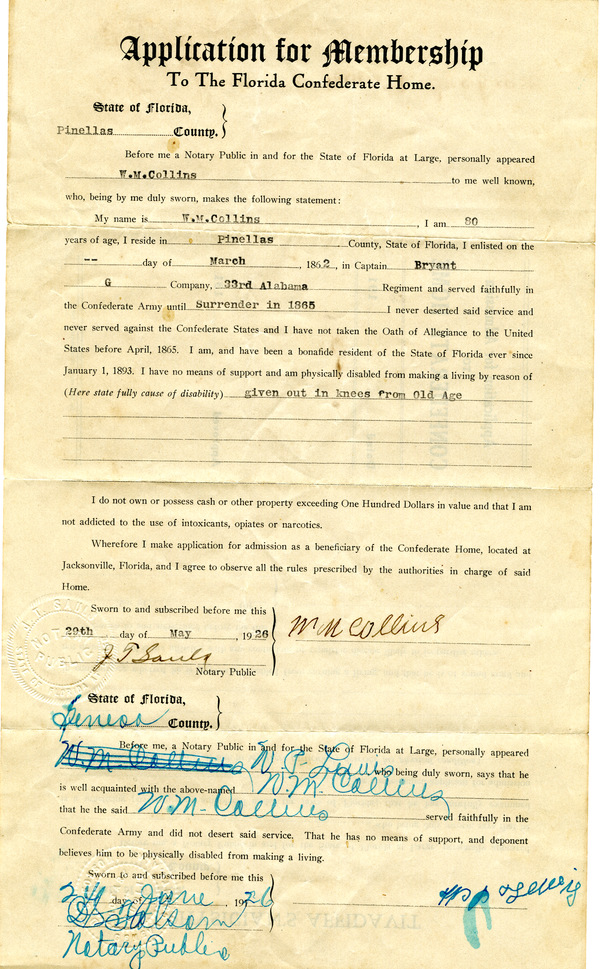 Application for Membership
To The Florida Confederate Home.
State of Florida,
Pinellas County.
Before me a Notary Public in and for the State of Florida at Large, personally appeared
W.M.Collins to me well known,
who, being by me duly sworn, makes the following statement:
My name is W.M.Collins, I am 80
years of age, I reside in Pinellas County, State of Florida, I enlisted on the
-- day of March, 1862, in Captain Bryant
G Company, 33rd Alabama Regiment and served faithfully in
the Confederate Army until Surrender in 1865 I never deserted said service and
never served against the Confederate States and I have not taken the Oath of Allegiance to the United
States before April, 1865. I am, and have been a bonafide resident of the State of Florida ever since
January 1, 1893. I have no means of support and am physically disabled from making a living by reason of
(Here state fully cause of disability) given out in knees from Old Age
I do not own or possess cash or other property exceeding One Hundred Dollars in value and that I am
not addicted to the use of intoxicants, opiates or narcotics.
Wherefore I make application for admission as a beneficiary of the Confederate Home, located at
Jacksonville, Florida, and I agree to observe all the rules prescribed by the authorities in charge of said
Home.
Sworn to and subscribed before me this
29th day of May, 1926
Wm Collins
J T Sauls
Notary Public
NOTARY PUBLIC
State of Florida,
County.
Before me, a Notary Public in and for the State of Florida at Large, personally appeared
W.M. Collins W. P. Lewis who being duly sworn, says that he
is well acquainted with the above-named W.M. Collins
that he the said W.M. Collins served faithfully in the
Confederate Army and did not desert said service. That he has no means of support, and deponent
believes him to be physically disabled from making a living.
Sworn to and subscribed before me this
24 day of June, 1926
Folsom
Notary Public